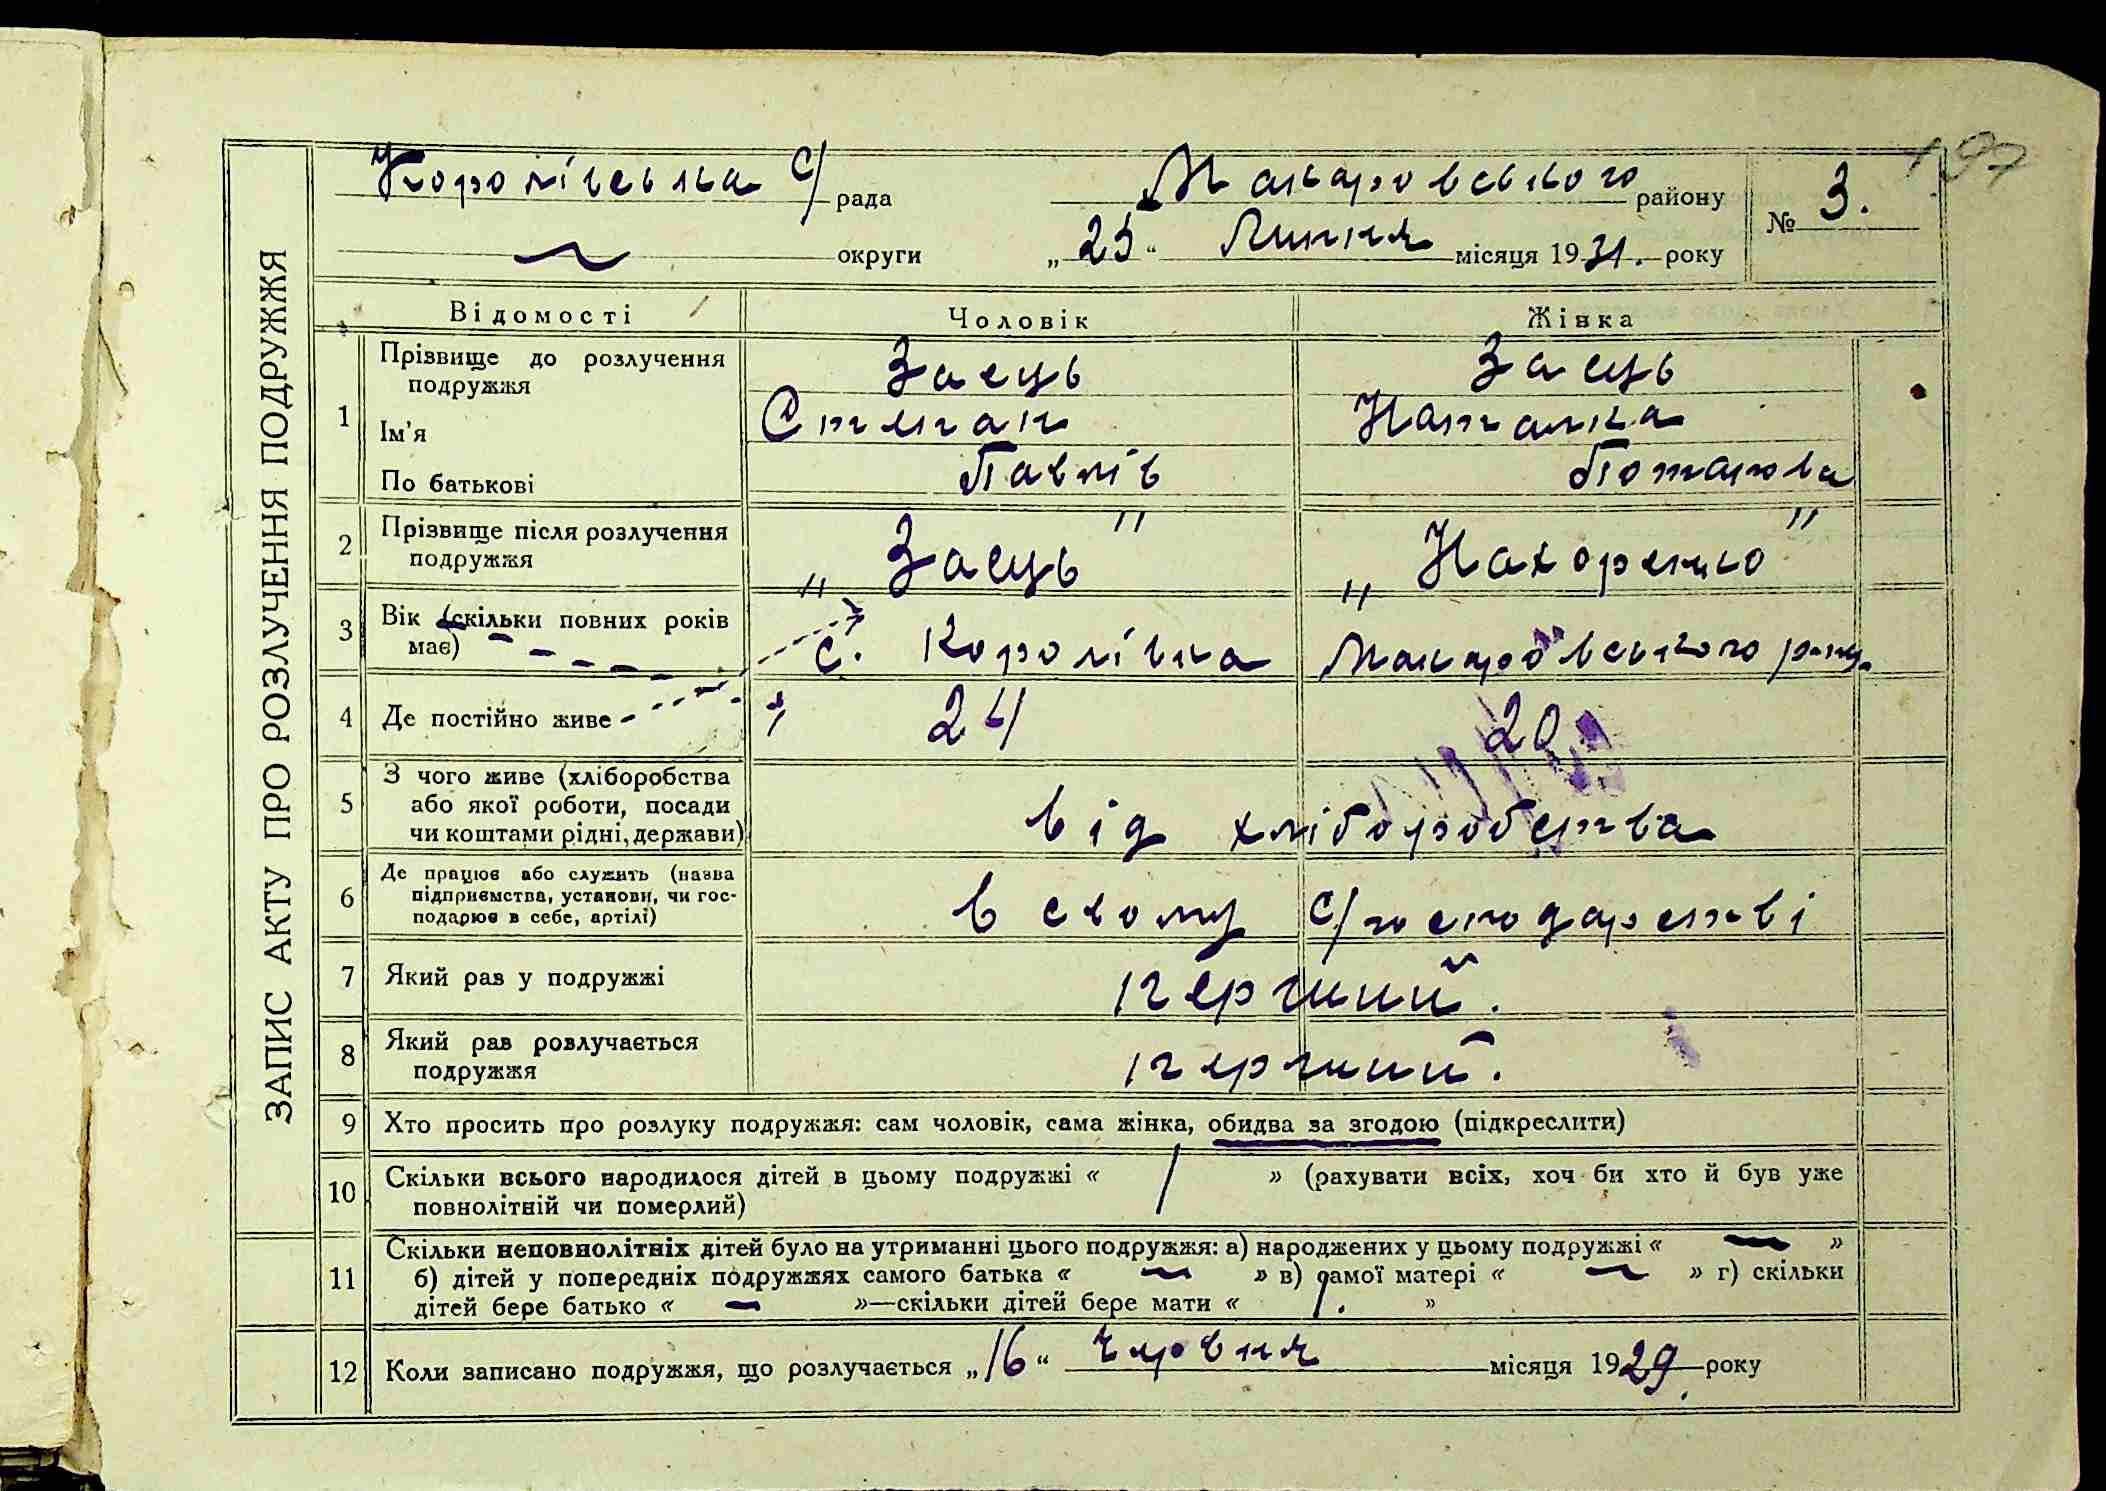 197
Королівська с/рада Макаровського району № 3.
округи „25“ Липня місяця 1931. року
ЗАПИС АКТУ ПРО РОЗЛУЧЕННЯ ПОДРУЖЖЯ
Відомості Чоловік Жінка
1 Прізвище до розлучення подружжя Заєць Заєць
Ім'я Степан Наталка
По батькові Павлів Потапова
2 Прізвище після розлучення подружжя „Заєць" „Нахоренко"
3 Вік (скільки повних років має) с. Королівка Макаровського р-ну.
4 Де постійно живе 24 20
5 З чого живе (хліборобства
або якої роботи, посади
чи коштами рідні, держави) від хліборобства
6 Де працює або служить (назва
підприємства, установи, чи гос-
подарює в себе, артілі) в свому с/господарстві
7 Який раз у подружжі перший.
8 Який раз розлучається
подружжя перший.
9 Хто просить про розлуку подружжя: сам чоловік, сама жінка, обидва за згодою (підкреслити)
10 Скільки всього народилося дітей в цьому подружжі « 1 » (рахувати всіх, хоч би хто й був уже
повнолітній чи померлий)
11 Скільки неповнолітніх дітей було на утриманні цього подружжя: а) народжених у цьому подружжі « — »
б) дітей у попередніх подружжях самого батька « — » в) самої матері « — » г) скільки
дітей бере батько « — »—скільки дітей бере мати « 1. »
12 Коли записано подружжя, що розлучається „16“ червня місяця 1929. року